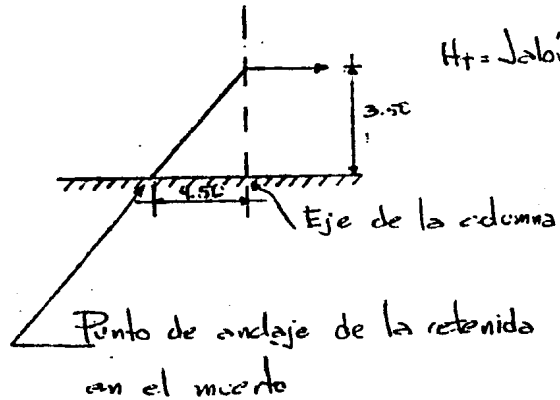 Ht = Jalón
3.50
4.50
Eje de la columna
Punto de anclaje de la retenida
en el muerto